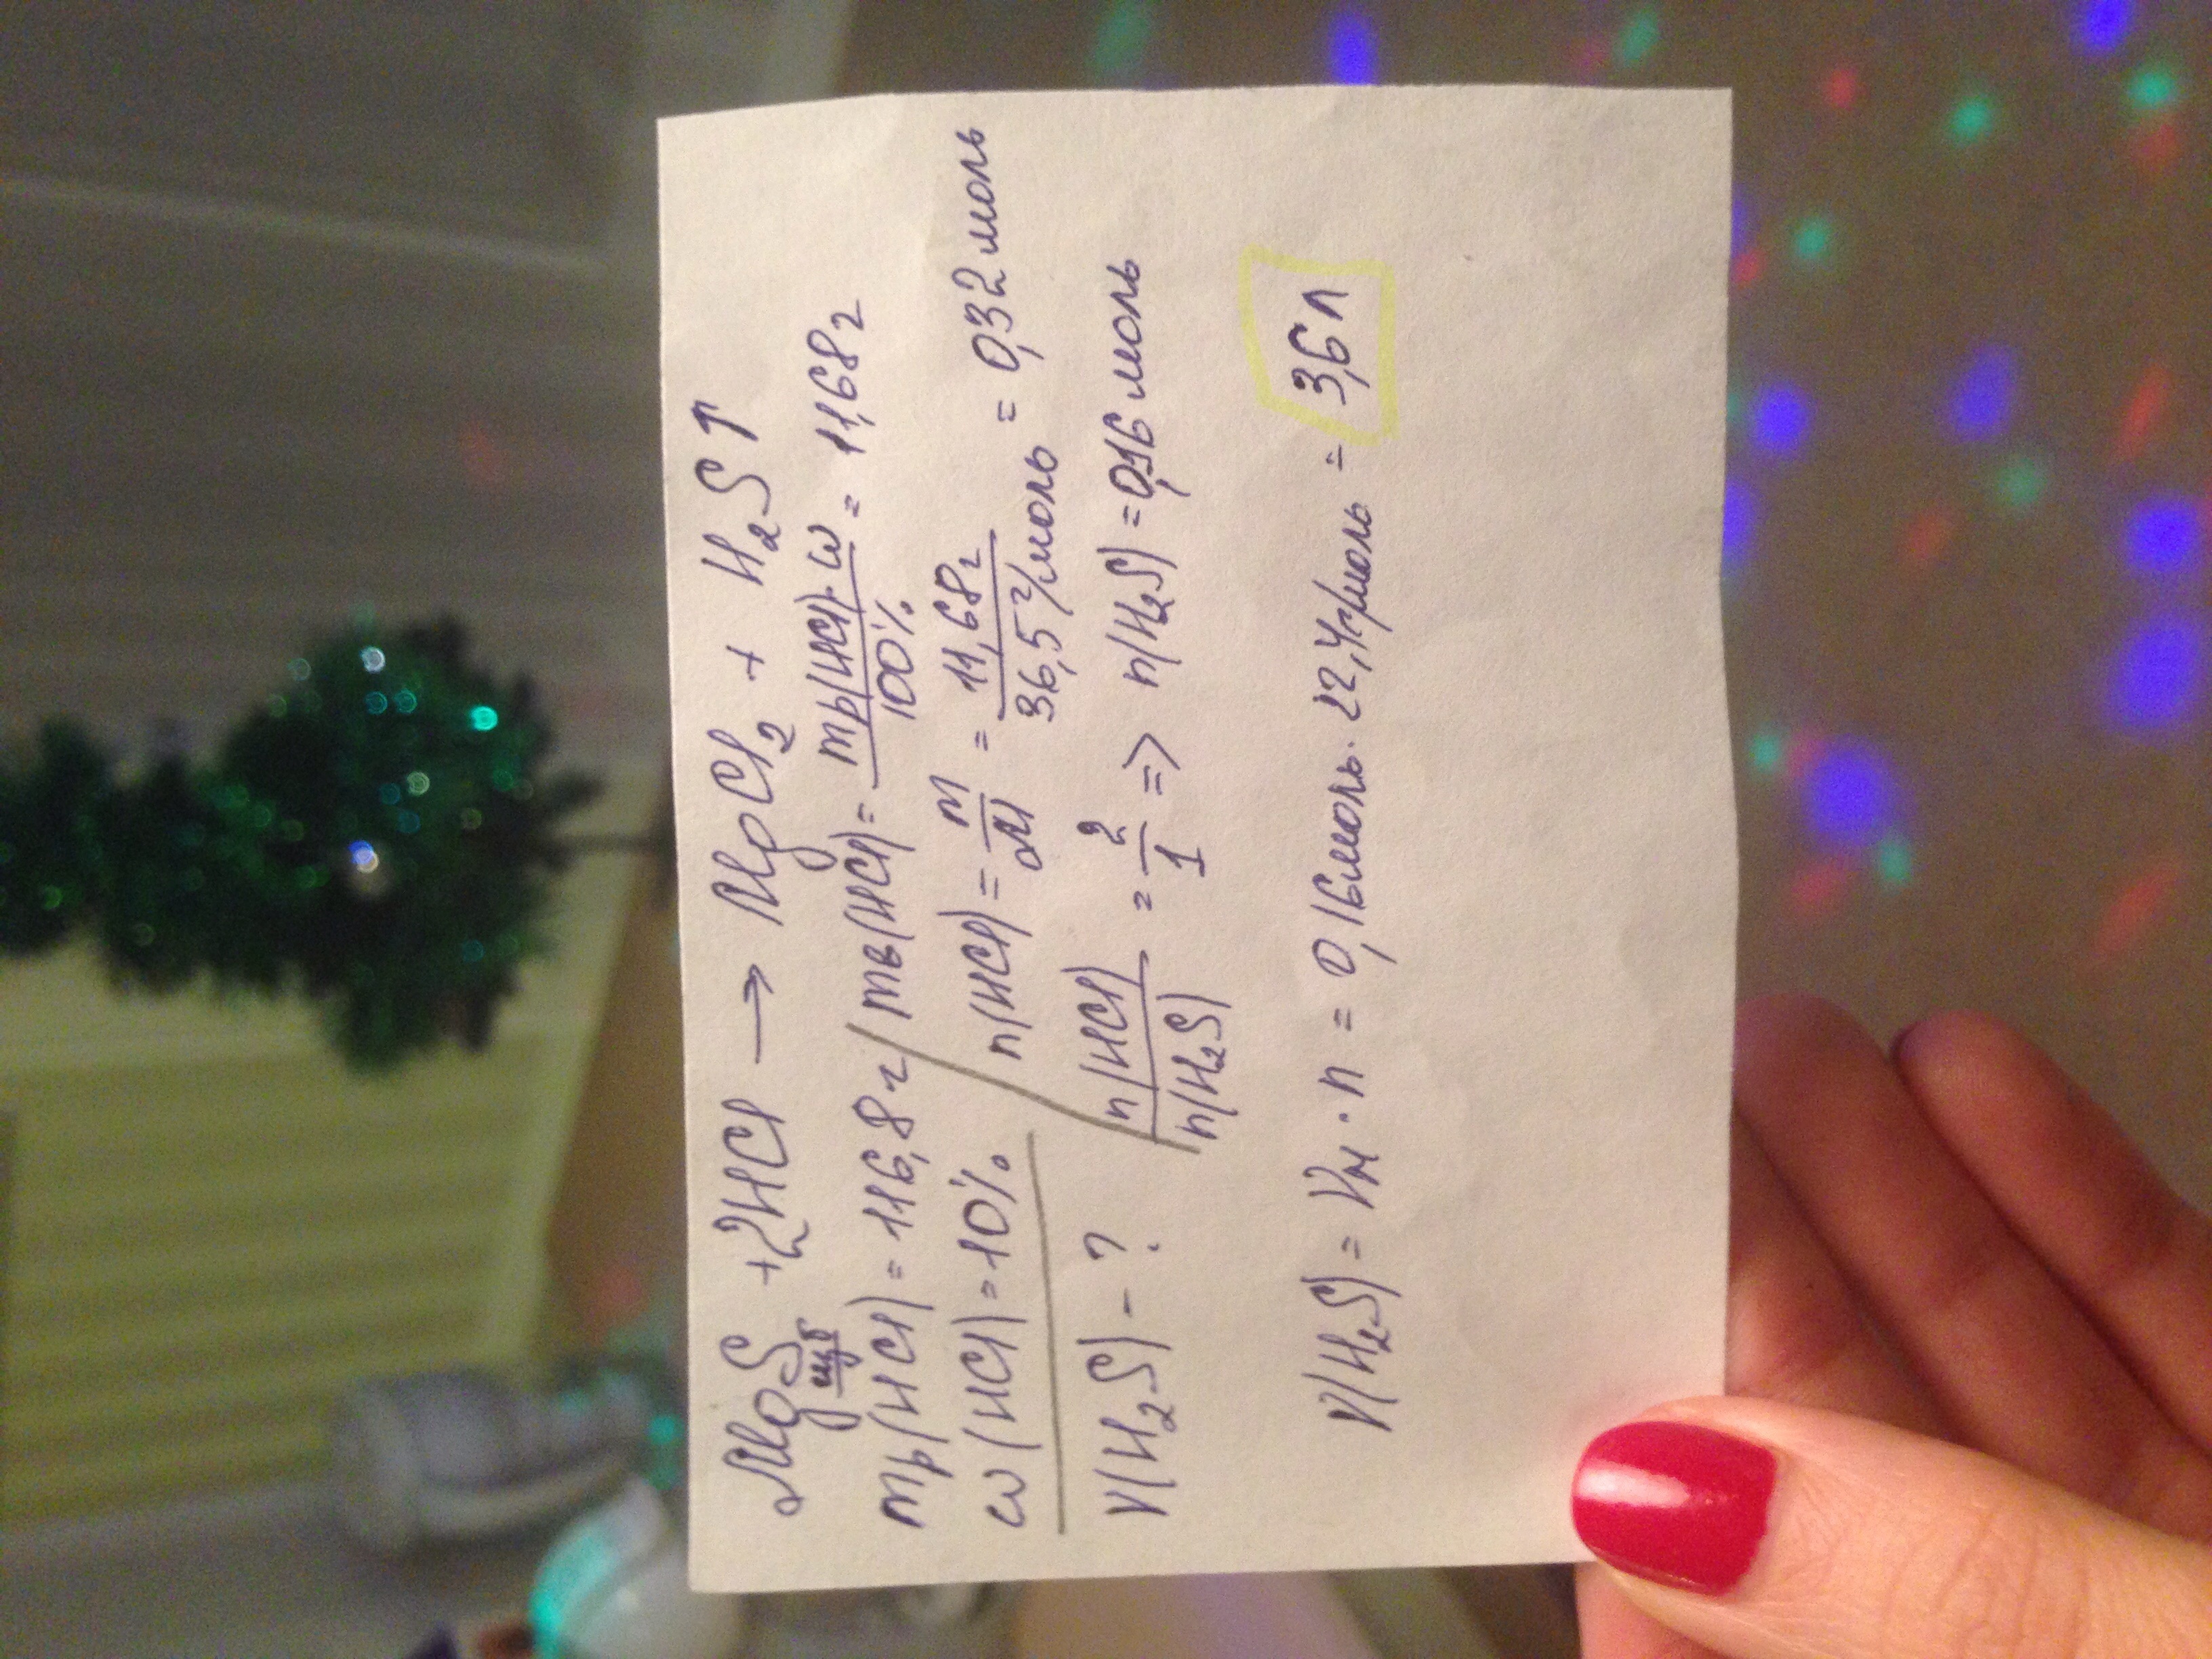 MgS изб + 2HCl → MgCl2 + H2S↑
mр(HCl) = 116,8 г
ω(HCl) = 10%
V(H2S) - ?
mв(HCl) = mр(HCl)·ω / 100% = 11,68 г
n(HCl) = m/M = 11,68 г / 36,5 г/моль = 0,32 моль
n(HCl) / n(H2S) = 2/1 => n(H2S) = 0,16 моль
V(H2S) = Vм · n = 0,16 моль · 22,4 г/моль = 3,6 л